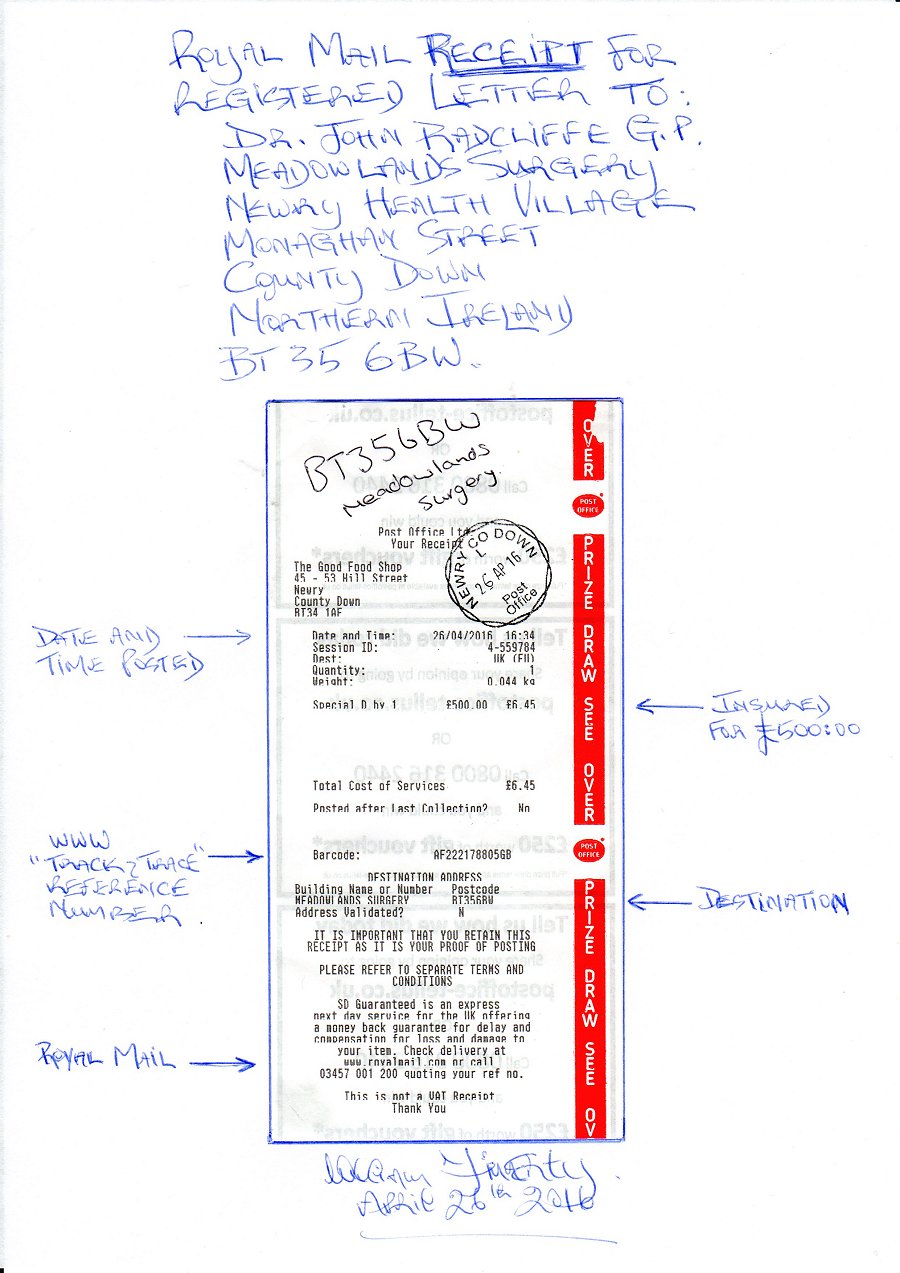 ROYAL MAIL RECEIPT FOR
REGISTERED LETTER TO:
DR. JOHN RADCLIFFE G.P.
MEADOWLANDS SURGERY
NEWRY HEALTH VILLAGE
MONAGHAN STREET
COUNTY DOWN
NORTHERN IRELAND
BT35 6BW.
BT356BW
Meadowlands
Surgery.
Post Office Ltd.
Your Receipt
NEWRY CO DOWN
L
26 AP 16
Post
Office
The Good Food Shop
45 - 53 Hill Street
Newry
County Down
BT34 1AF
DATE AND
TIME POSTED
Date and Time: 26/04/2016 16:34
Session ID: 4-559784
Dest: UK (EU)
Quantity: 1
Weight: 0.044 kg
Special D by 1 £500.00 £6.45
INSURED
FOR £500:00
Total Cost of Services £6.45
Posted after Last Collection? No
WWW
"TRACK & TRACE"
REFERENCE
NUMBER
Barcode: AF222178805GB
DESTINATION ADDRESS
Building Name or Number Postcode
MEADOWLANDS SURGERY BT356BW
Address Validated? N
DESTINATION
IT IS IMPORTANT THAT YOU RETAIN THIS
RECEIPT AS IT IS YOUR PROOF OF POSTING
PLEASE REFER TO SEPARATE TERMS AND
CONDITIONS
SD Guaranteed is an express
next day service for the UK offering
a money back guarantee for delay and
compensation for loss and damage to
your item. Check delivery at
www.royalmail.com or call
03457 001 200 quoting your ref no.
ROYAL MAIL
This is not a VAT Receipt
Thank You
OVER
POST OFFICE
PRIZE DRAW SEE OVER
POST OFFICE
PRIZE DRAW SEE OV
APRIL 26th 2016